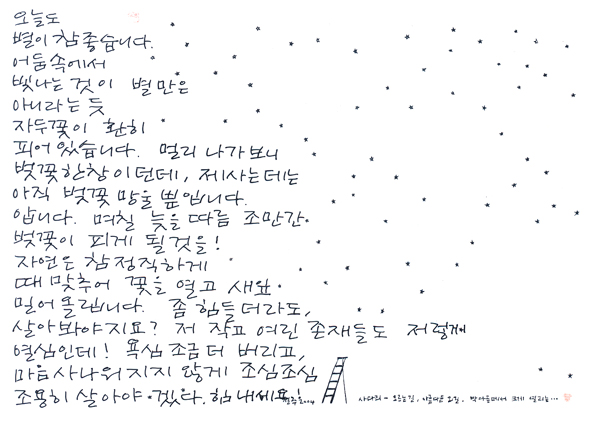 오늘도
별이 참 좋습니다.
어둠속에서
빛나는 것이 별만은
아니라는 듯
자두꽃이 환히
피어있습니다. 멀리 나가보니
벚꽃한창이던데, 제사는데는
아직 벚꽃 망울 뿐입니다.
압니다. 며칠 늦을 따름 조만간
벚꽃이 피게 될것을!
자연은 참 정직하게
때 맞추어 꽃을 열고 새잎
밀어 올립니다. 좀 힘들더라도,
살아봐야지요? 저 작고 여린 존재들도 저렇게
열심인데! 욕심 조금 더 버리고,
마음 사나워지지 않게 조심조심
조용히 살아야 겠다. 힘내세요!
사다리 - 오르는 길,